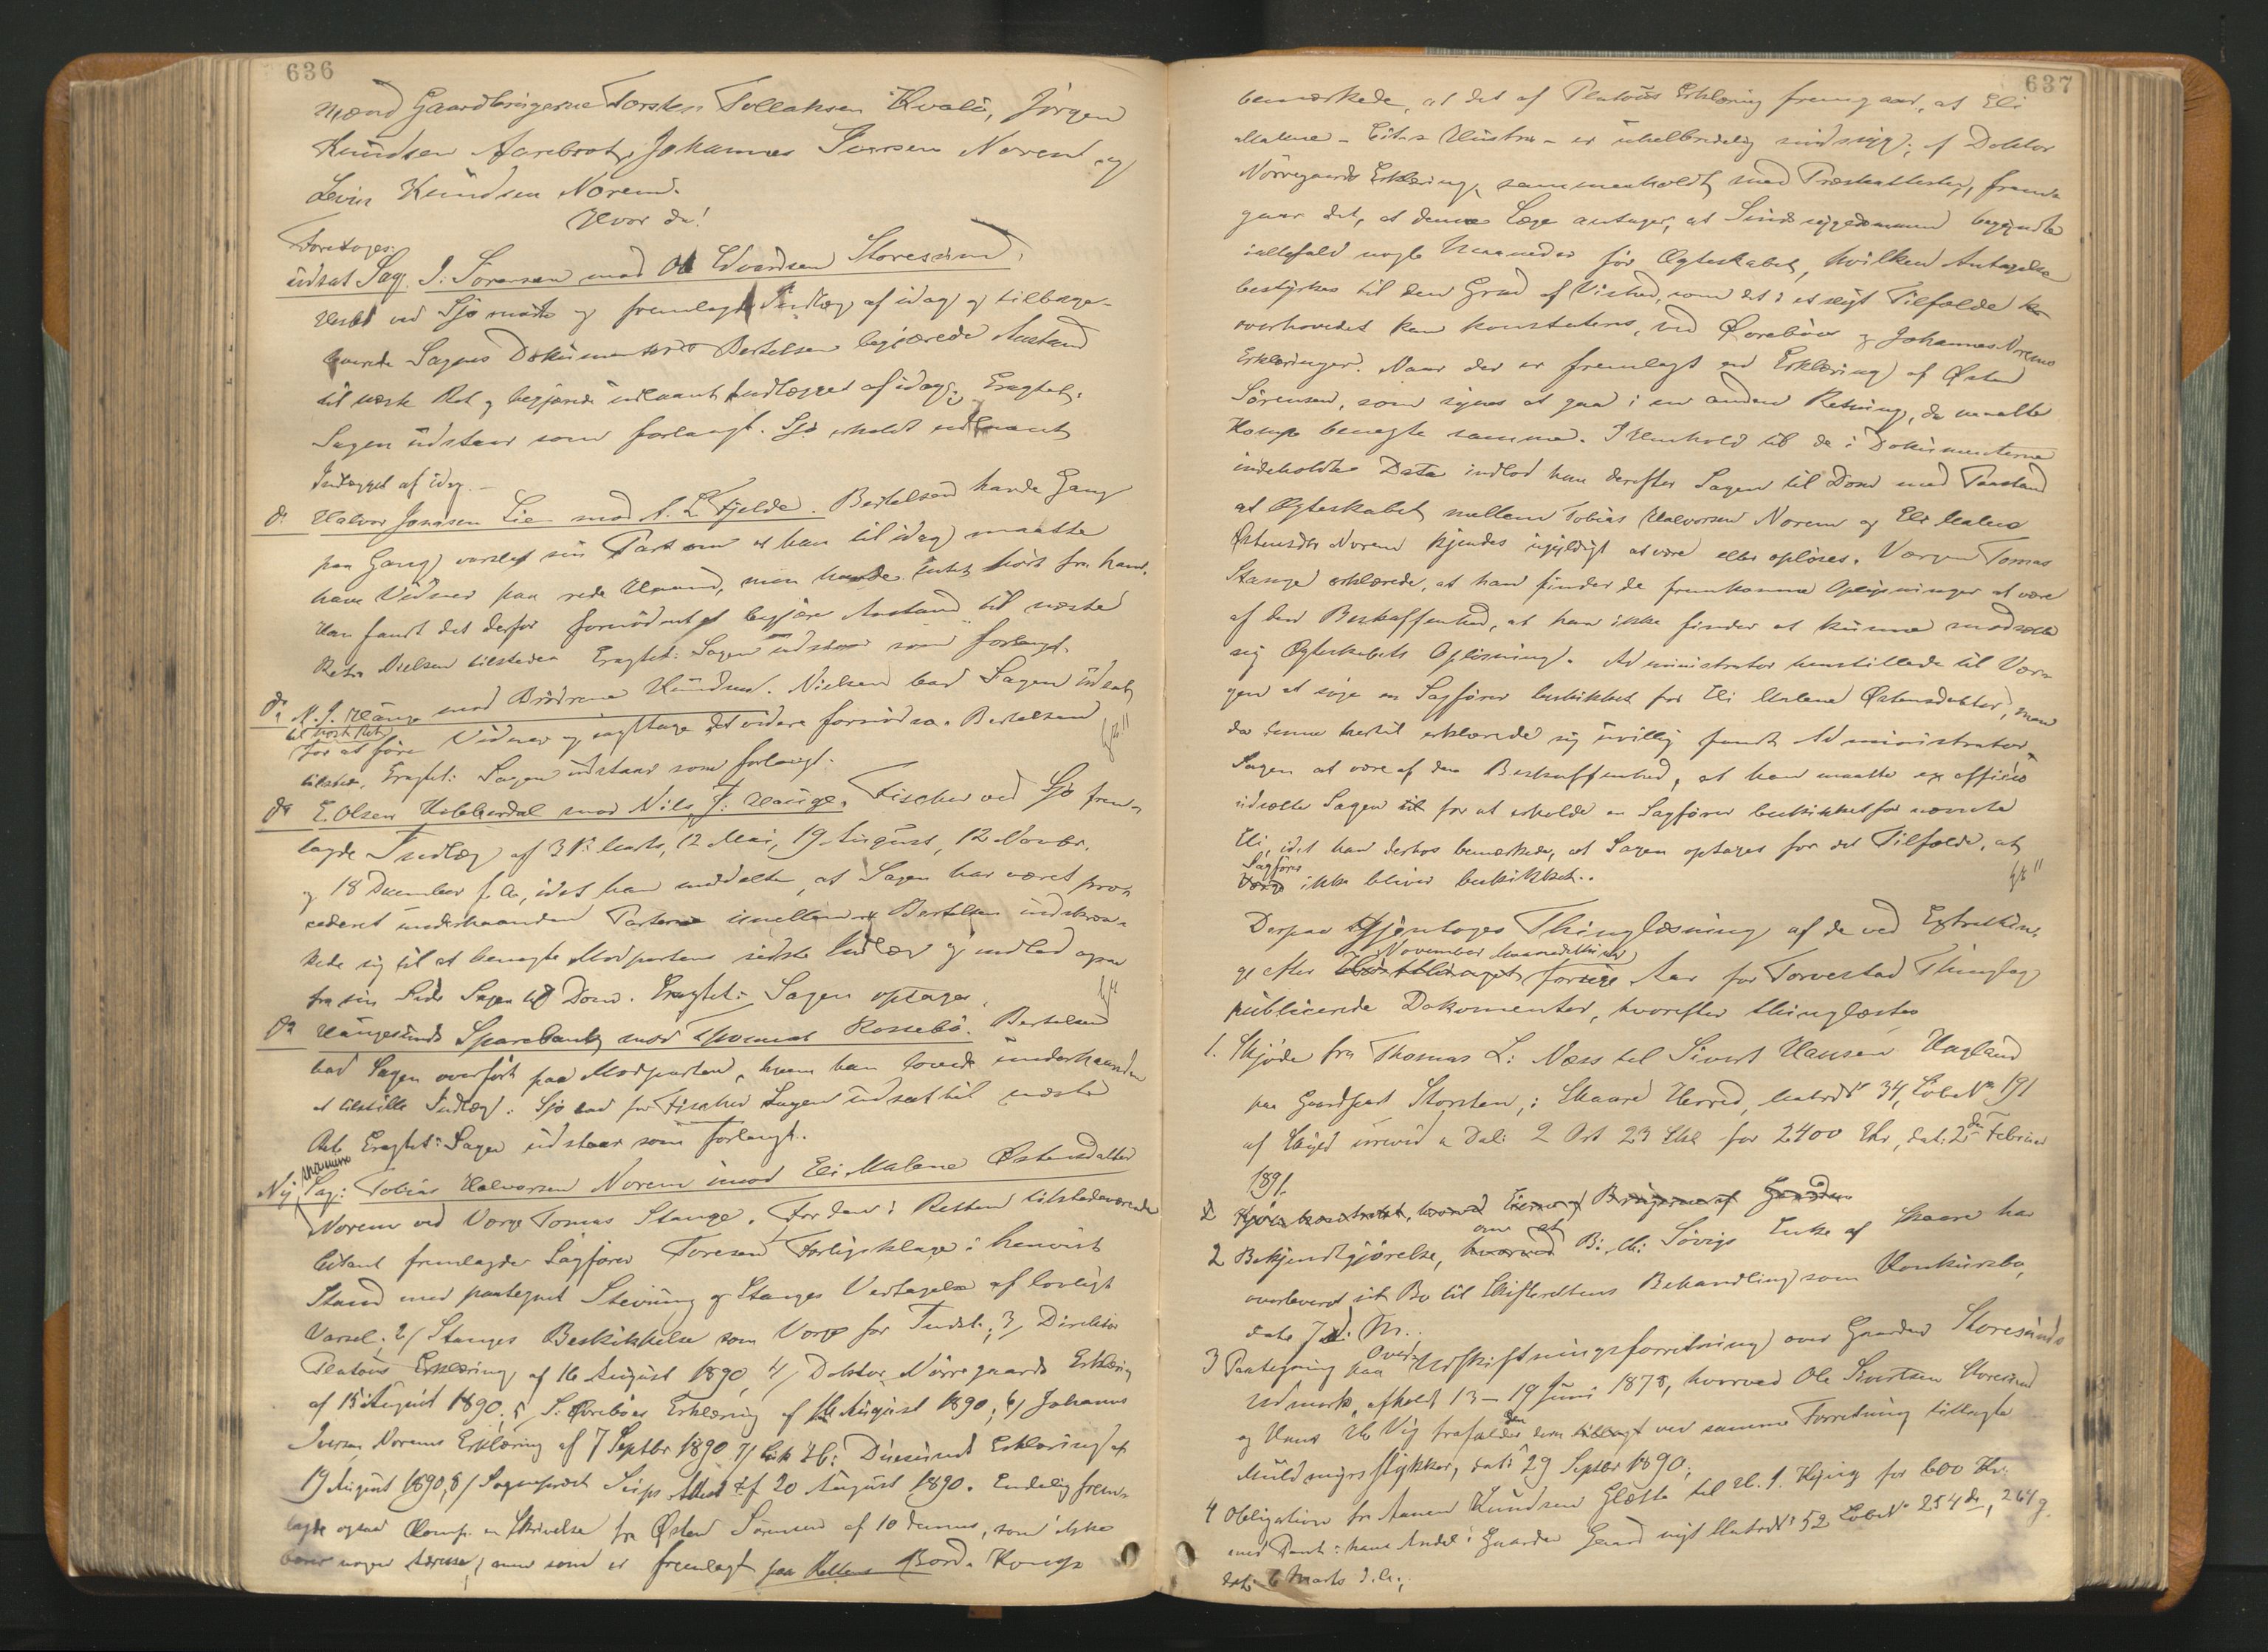 636
mænd Gaardbrugerne Torsten Tollaksen Kvalø, Jörgen
Knudsen Aarebrot, Johannes Iversen Norem og
Levin Knudsen Norem.
Hvor da!
Foretoges:
udsat Sag. J. Sørensen mod Ole Edvardsen Storesund,
ved Sjø mødte og fremlagde Indlæg af idag og tilbage-
leverede Sagens Dokumenter. Bertelsen begjærede Anstand
til næste Ret og begjærede udlaant Indlægget af idag. Eragtet:
Sagen udstaar som forlangt. Sjø erholdt udlaant
Indlægget af idag.-
do Halvor Jonasen Lie mod A. L. Fjelde. Bertelsen havde Gang
paa Gang varslet sin Part om at han til idag maatte
have Vidner paa rede Haand, men havde intet hørt fra ham.
Han fandt det derfor fornødent at begjære Anstand til næste
Ret. Nielsen tilstede. Eragtet: Sagen udstaar som forlangt.
do M. J. Hauge mod Brødrene Knudsen. Nielsen bad Sagen udsat
til næste Ret
for at føre Vidner og iagttage det videre fornødne. Bertelsen
tilstede. Eragtet: Sagen udstaar som forlangt.
do E. Olsen Hebbesdal mod Nils J. Hauge. Fischer ved Sjø frem-
lagde Indlæg af 31 Marts, 12 Mai, 19 August, 12 Novbr.
og 18 December f. A., idet han meddelte, at Sagen har været pro-
cederet underhaanden Parterne imellem. Bertelsen indskræn-
kede sig til at benægte Modpartens sidste Indlæg og indlod ogsaa
fra sin Side Sagen til Dom. Eragtet: Sagen optages.
do Haugesunds Sparebank mod Thomas Rossebø. Bertelsen
bad Sagen overført paa Modparten, hvem han lovede underhaanden
at tilstille Indlæg. Sjø bad for Fischer Sagen udsat til næste
Ret. Eragtet: Sagen udstaar som forlangt.
Ny Sag: Tobias Halvorsen Norem imod Eli Malene Østensdatter
Norem ved Værge Tomas Stange. For den i Retten tilstedeværende
Citant fremlagde Sagfører Toresen Forligsklage i henvist
Stand med paategnet Stevning og Stanges Vedtagelse af lovligt
Varsel; 2/ Stanges Beskikkelse som Værge for Indst.; 3/ Direktør
Platous Erklæring af 16 August 1890, 4/ Doktor Nørregaards Erklæring
af 15 August 1890; 5/ S. Ørebøes Erklæring af 16 August 1890; 6/ Johannes
Iversen Norems Erklæring af 7 Septbr 1890 7/ Duesunds Erklæring af
19 August 1890, 8/ Sogneprest Seips Attest af 20 August 1890. Endelig frem-
lagde ogsaa Komp. en Skrivelse fra Østen Sørensen af 10 dennes, som ikke
bærer nogen Adresse, men som er fremlagt paa Rettens Bord. Komp.
637
bemærkede, at det af Platous Erklæring fremgaar, at Eli
Malene - Cit.s Hustru - er uhelbredelig sindssyg; af Doktor
Nørregaards Erklæring, sammenholdt med Præsteattesten, frem-
gaar det, at denne Læge antager, at Sindssygdommen begyndte
ialfald nogle Maaneder før Ægteskabet, hvilken Antagelse
bestyrkes til den Grad af Vished, som det i et sligt Tilfælde
overhovedet kan konstateres, ved Ørebøes og Johannes Norems
Erklæringer. Naar der er fremlagt en Erklæring af Østen
Sørensen, som synes at gaa i en anden Retning, da maatte
Komp. benegte samme. I Henhold til de i Dokumenterne
indeholdte Data indlod han derefter Sagen til Dom med Paastand
at Ægteskabet mellem Tobias Halvorsen Norem og Eli Malene
Østensdtr Norem kjendes ugyldigt at være eller opløses. Værgen Tomas
Stange erklærede, at han finder de fremkomne Oplysninger at være
af den Beskaffenhed, at han ikke finder at kunne modsætte
sig Ægteskabets Opløsning. Administrator henstillede til Vær-
gen at søge en Sagfører beskikket for Eli Malene Østensdatter, men
da denne hertil erklærede sig uvillig fandt Administrator
Sagen at være af den Beskaffenhed, at han maatte ex officio
udsætte Sagen til for at erholde en Sagfører beskikket for nævnte
Eli, idet han derhos bemærkede, at Sagen optages for det Tilfælde, at
Sagfører
Værge ikke bliver beskikket.
Derpaa gjentoges Thinglæsning af de ved Extrathin-
November Maanedsthing
ge efter forrige Aar for Torvestad Thinglag
publicerede Dokumenter, hvorefter thinglæstes
1. Skjøde fra Thomas L: Næss til Sivert Hansen Hagland
paa Gaardpart Storsten, i Skaare Herred, Matr No 34, Løbe No 191
af Skyld urevid. 2 Ort 23 Skl for 2400 Kr, dat: 2den Februar
1891.
2
om at
2 Bekjendtgjørelse, hvorved B: M: Søvigs Enke af Skaare har
overleveret sit Bo til Skifterettens Behandling som Konkursbo,
dat. 7 d: M.;
3 Paategning paa Over Udskiftningsforretning over Gaarden Storesunds
Udmark, afholdt 13-19 Juni 1878, hvorved Ole Sivertsen Storesund
og Hans Vig frafalder dem ved samme Forretning tillagte
Muldmyrsstykker, dat: 29 Septbr 1890;
4 Obligation fra Aanen Knudsen Gløtte til M. J. Kying for 600 Kr.
med Pant i hans Andel i Gaarden Gaard nyt Matr No 52 Løbe No 254 de, 264 g
dat: 6 Marts d. A.;